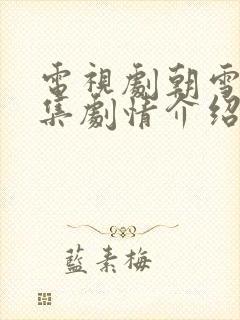 電視劇朝雪
集劇情介紹
藍素梅